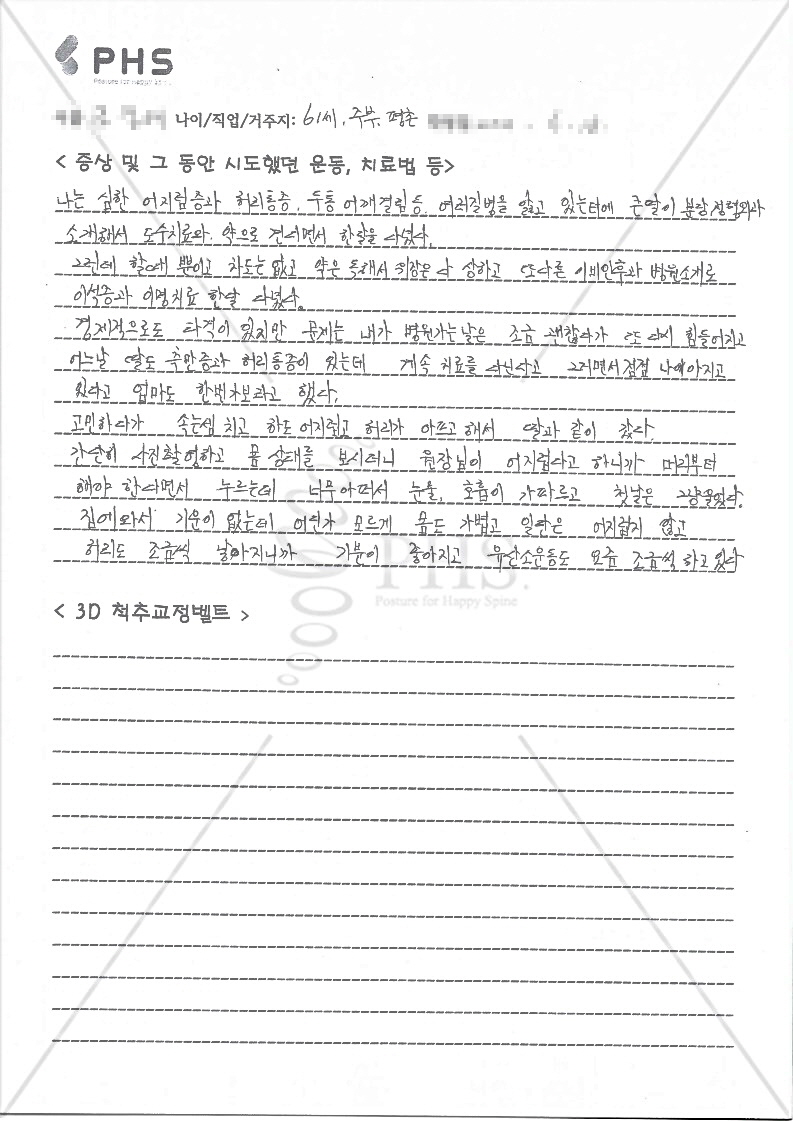 PHS
Posture for Happy Spine
나이/직업/거주지: 61세. 주부. 평촌
< 증상 및 그 동안 시도했던 운동, 치료법 등>
나는 심한 어지럼증과 허리통증. 두통 어깨결림등. 여러질병을 앓고 있는터에 큰딸이 분당정형외과
소개해서 도수치료와. 약으로 견디면서 한달을 다녔다.
그런데 할때 뿐이고 차도는 없고 약은 독해서 위장은 다 상하고 또다른 이비인후과 병원소개로
이석증과 이명치료 한달 다녔다.
경제적으로도 타격이 있지만 문제는 내가 병원가는날은 조금 괜찮다가 또 다시 힘들어지고
어느날 딸도 측만증과 허리통증이 있는데 계속 치료를 다닌다고 그러면서 점점 나아지고
있다고 엄마도 한번가보라고 했다.
고민하다가 속는셈 치고 하도 어지럽고 허리가 아프고해서 딸과 같이 갔다.
간단히 사진촬영하고 몸 상태를 보시더니 원장님이 어지럽다고 하니까 머리부터
해야 한다면서 누르는데 너무아파서 눈물, 호흡이 가파르고 첫날은 그랬었다.
집에와서 기운이 없는데 어딘가 모르게 몸도 가볍고 일단은 어지럽지 않고
허리도 조금씩 낳아지니까 기분이 좋아지고 유산소운동도 요즘 조금씩 하고있다
PHS.
Posture for Happy Spine
< 3D 척추교정벨트 >